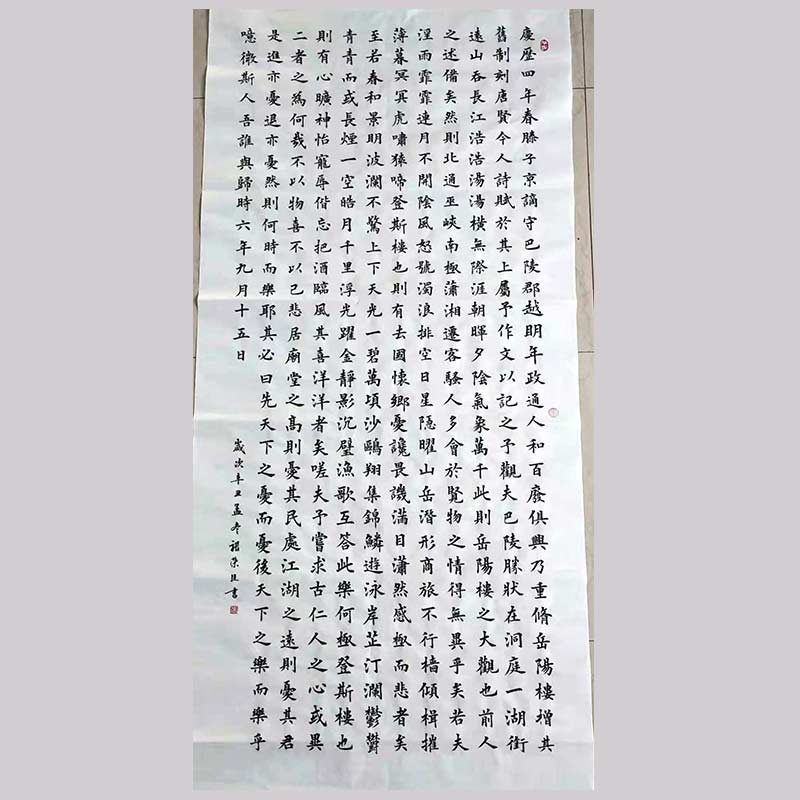 慶歷四年春滕子京謫守巴陵郡越明年政通人和百廢俱興乃重脩岳陽樓增其
舊制刻唐賢今人詩賦於其上屬予作文以記之予觀夫巴陵勝狀在洞庭一湖銜
遠山吞長江浩浩湯湯橫無際涯朝暉夕陰氣象萬千此則岳陽樓之大觀也前人
之述備矣然則北通巫峽南極瀟湘遷客騷人多會於覽物之情得無異乎矣若夫
淫雨霏霏連月不開陰風怒號濁浪排空日星隱曜山岳潛形商旅不行檣傾楫摧
薄暮冥冥虎嘯猿啼登斯樓也則有去國懷鄉憂讒畏譏滿目瀟然感極而悲者矣
至若春和景明波瀾不驚上下天光一碧萬頃沙鷗翔集錦鱗遊泳岸芷汀瀾鬱鬱
青青而或長煙一空皓月千里浮光躍金靜影沉璧漁歌互答此樂何極登斯樓也
則有心曠神怡寵辱偕忘把酒臨風其喜洋洋者矣嗟夫予嘗求古仁人之心或異
二者之為何哉不以物喜不以己悲居廟堂之高則憂其民處江湖之遠則憂其君
是進亦憂退亦憂然則何時而樂耶其必曰先天下之憂而憂後天下之樂而樂乎
噫微斯人吾誰與歸時六年九月十五日
歲次辛丑孟冬書